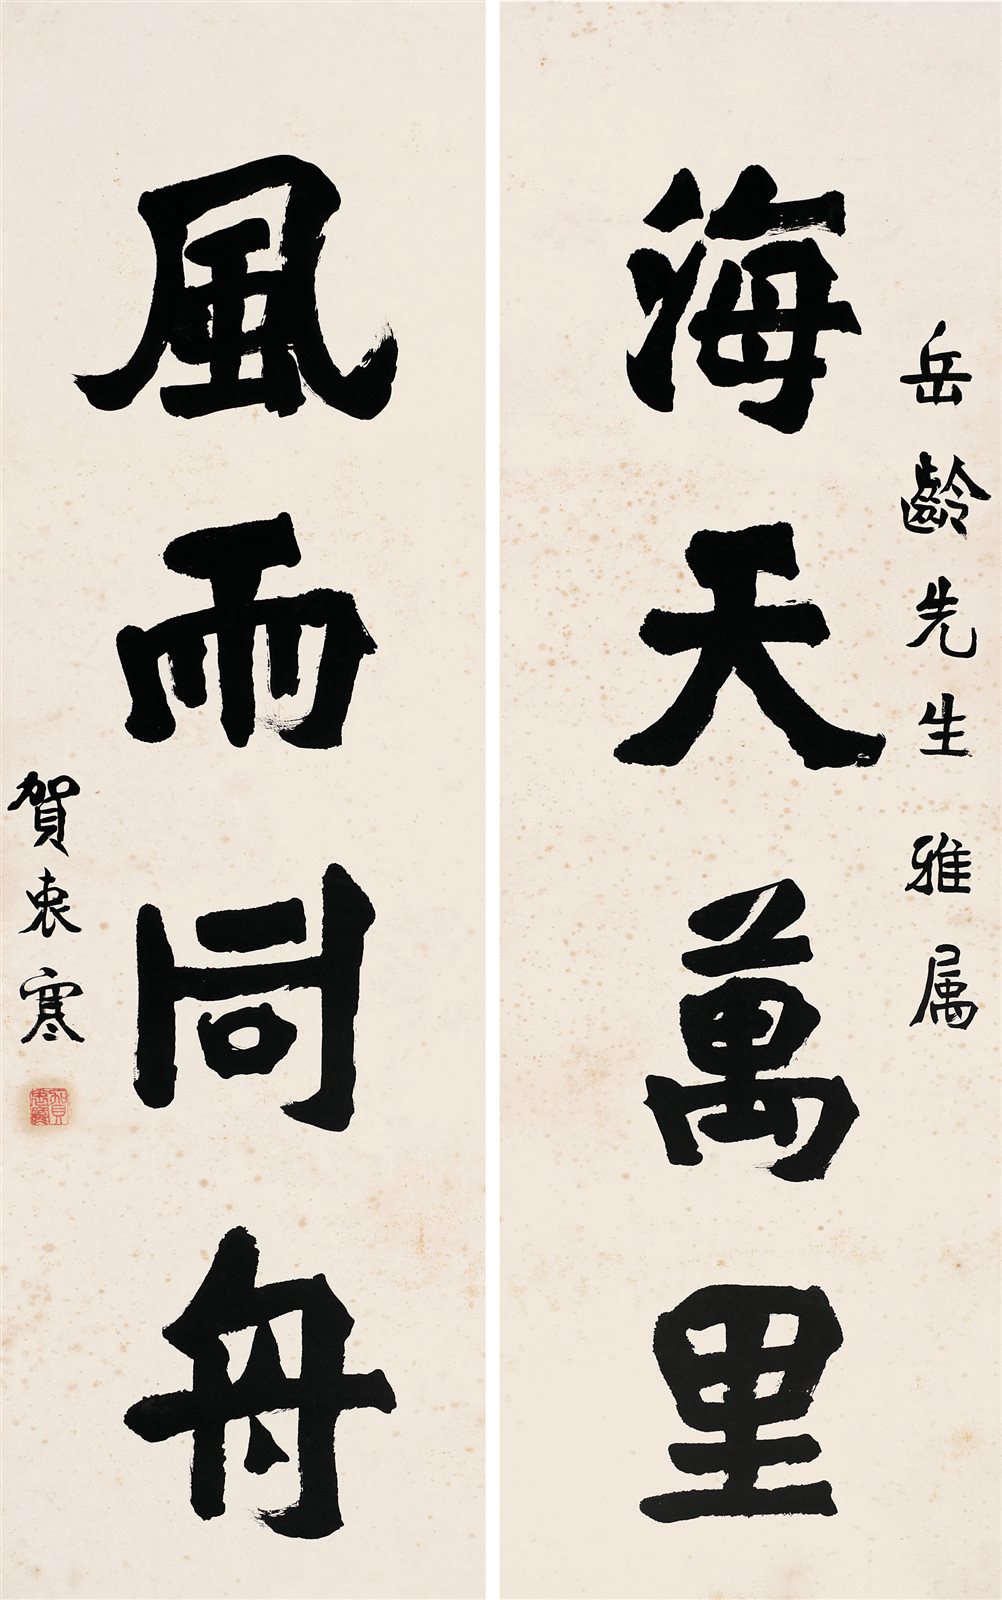 岳齡先生雅属
海天萬里
風雨同舟
賀衷寒
賀
衷寒